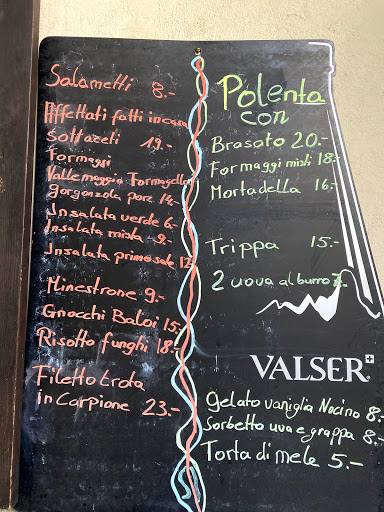 Salametti 8.-
Affettati fatti in casa
Sottaceti 19.-
Formaggi
Vallemaggia Formagella
gorgonzola porz. 14.-
Insalata verde 6.-
Insalata mista 9.-
Insalata primo sole 12
Minestrone 9.-
Gnocchi Baloi 15.-
Risotto funghi 18.-
Filetto trota
in Carpione 23.-
Polenta
con
Brasato 20.-
Formaggi misti 18.-
Mortadella 16.-
Trippa 15.-
2 uova al burro 7.-
VALSER
Gelato vaniglia Nocino 8.-
Sorbetto uva e grappa 8.-
Torta di mele 5.-